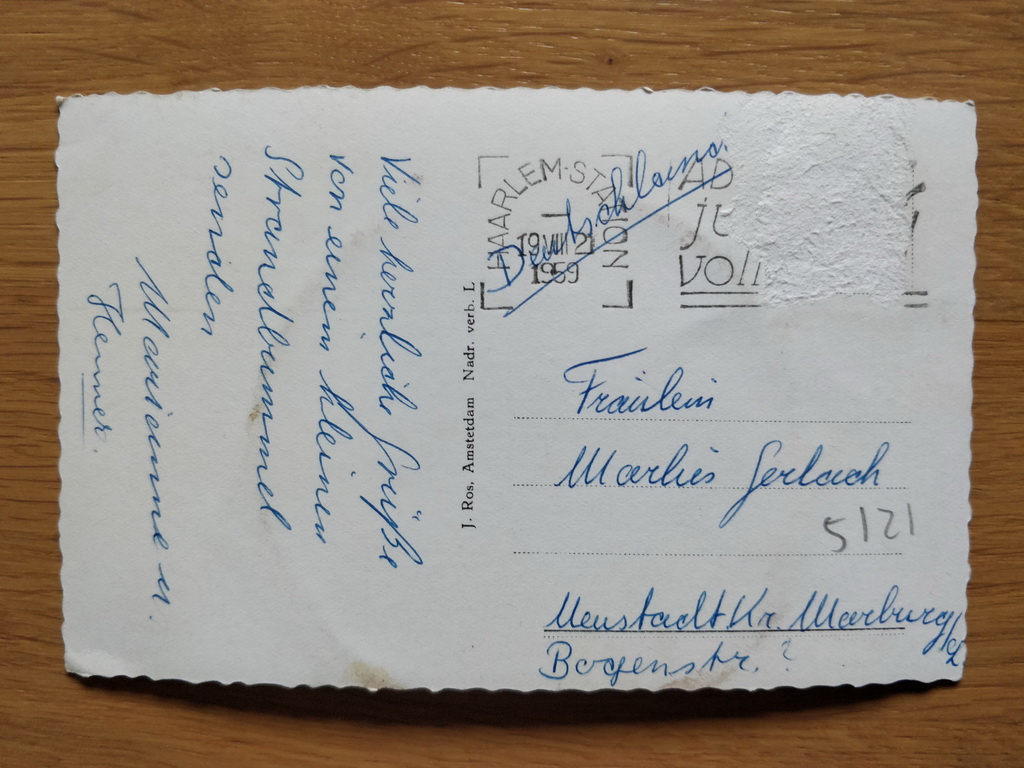 Viele herzliche Grüße
von einem kleinen
Strandbummel
senden
Marianne u.
Heiner.
J. Ros, Amstetdam Nadr. verb. L
HAARLEM-STATION
19 VIII 21
1959
Deutschland.
AD
je
voll
Fräulein
Marlies Gerlach
5121
Neustadt Kr. Marburg/L
Bogenstr. ?